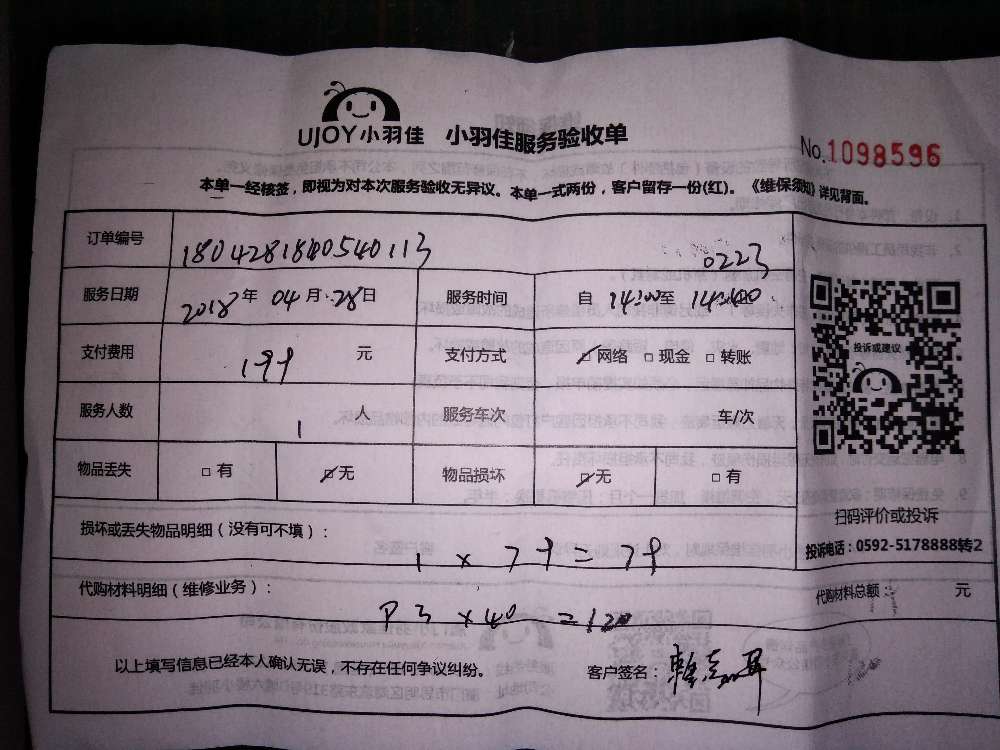 UJOY小羽佳 小羽佳服务验收单
No.1098596
本单一经核签，即视为对本次服务验收无异议。本单一式两份，客户留存一份(红)。《维保须知》详见背面。
订单编号 1804281840540113 0223
服务日期 2018年 04月 28日 服务时间 自 14:00至 14:40
支付费用 199 元 支付方式 ☑网络 □现金 □转账
投诉或建议
服务人数 1 人 服务车次 车/次
物品丢失 □有 ☑无 物品损坏 ☑无 □有
扫码评价或投诉
投诉电话：0592-5178888转2
损坏或丢失物品明细（没有可不填）：
1 × 79 = 79
代购材料明细（维修业务）： 代购材料总额： 元
P3 × 40 = 120
以上填写信息已经本人确认无误，不存在任何争议纠纷。 客户签名：